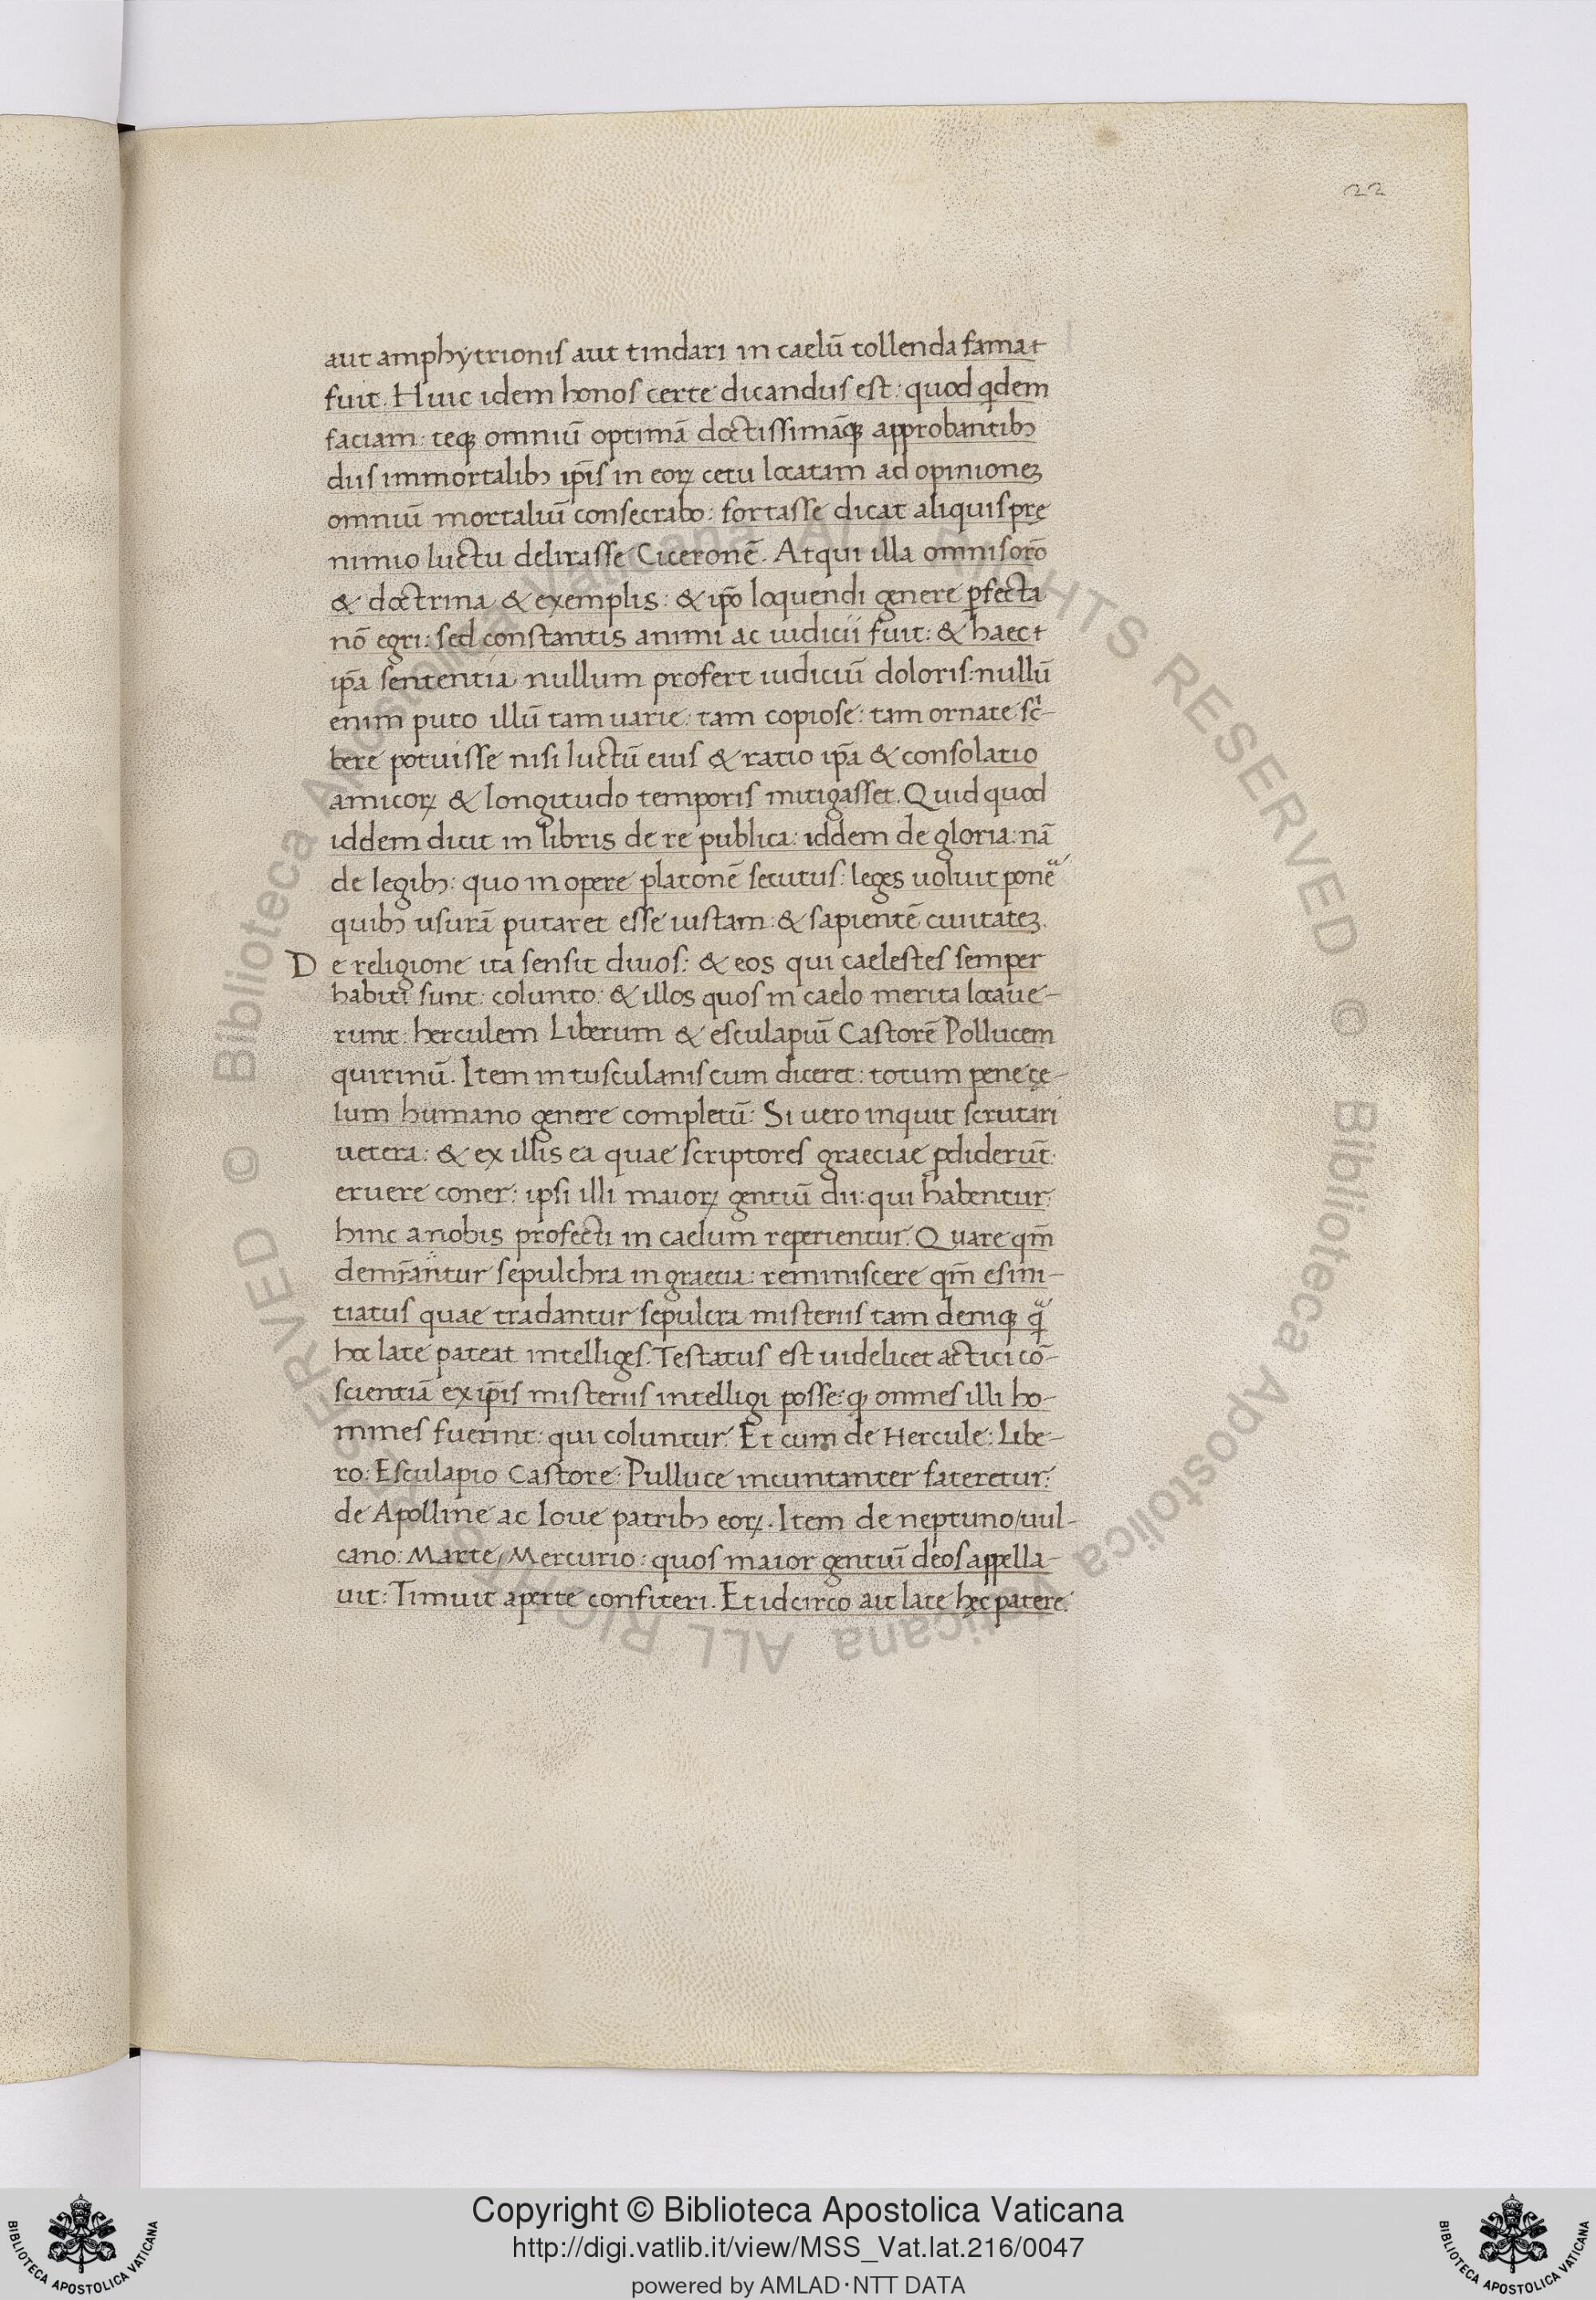 22
aut amphytrionis aut tindari in caelū tollenda fama t
fuit. Huic idem honos certe dicandus est: quod qͥdem
faciam: teqꝫ omniū optimā doctissimāqꝫ approbantibꝫ
diis immortalibꝫ ip̄is in eoꝝ cetu locatam ad opinioneꝫ
omniū mortaliū consecrabo: fortasse dicat aliquis prę
nimio luctu delirasse Ciceronē. Atqui illa omnis orō
& doctrina & exemplis: & ip̄o loquendi genere ꝑfecta
nō egri: sed constantis animi ac iudicii fuit: & haec t
ip̄a sententia nullum profert iudiciū doloris: nullū
enim puto illū tam uarie: tam copiose: tam ornate scͥ-
bere potuisse nisi luctū eius & ratio ip̄a & consolatio
amicoꝝ & longitudo temporis mitigasset. Quid quod
iddem dicit in libris de re publica: iddem de gloria: nā
de legibꝫ: quo in opere platonē secutus: leges uoluit ponē
quibꝫ usurā putaret esse iustam: & sapientē ciuitateꝫ.
De religione ita sensit diuos: & eos qui caelestes semper
habiti sunt: colunto: & illos quos in caelo merita locaue-
runt: herculem Liberum & esculapiū Castorē Pollucem
quirinū. Item in tusculanis cum diceret: totum pene cę-
lum humano genere completū: Si uero inquit scrutari
uetera: & ex illis ea quae scriptores graeciae ꝓdiderūt:
eruere coner: ipsi illi maioꝝ gentiū dii: qui habentur:
hinc a nobis profecti in caelum reperientur. Quare qm̄
demr̄antur sepulchra in graecia: reminiscere qm̄ es ini-
tiatus quae tradantur sepulcra misteriis tam deniqꝫ qᷓ
hoc late pateat intelliges. Testatus est uidelicet actici cō-
scientiā ex ip̄is misteriis intelligi posse: qꝫ omnes illi ho-
mines fuerint: qui coluntur. Et cum de Hercule: Libe-
ro: Esculapio Castore: Pulluce incuntanter fateretur:
de Apolline ac Ioue patribꝫ eoꝝ. Item de neptuno/uul-
cano: Marte/Mercurio: quos maior gentiū deos appella-
uit: Timuit aperte confiteri. Et idcirco ait late hęc patere.
© Biblioteca Apostolica Vaticana ALL RIGHTS RESERVED © Biblioteca Apostolica Vaticana ALL RIGHTS RESERVED
Copyright © Biblioteca Apostolica Vaticana
http://digi.vatlib.it/view/MSS_Vat.lat.216/0047
powered by AMLAD·NTT DATA
BIBLIOTECA APOSTOLICA VATICANA
BIBLIOTECA APOSTOLICA VATICANA